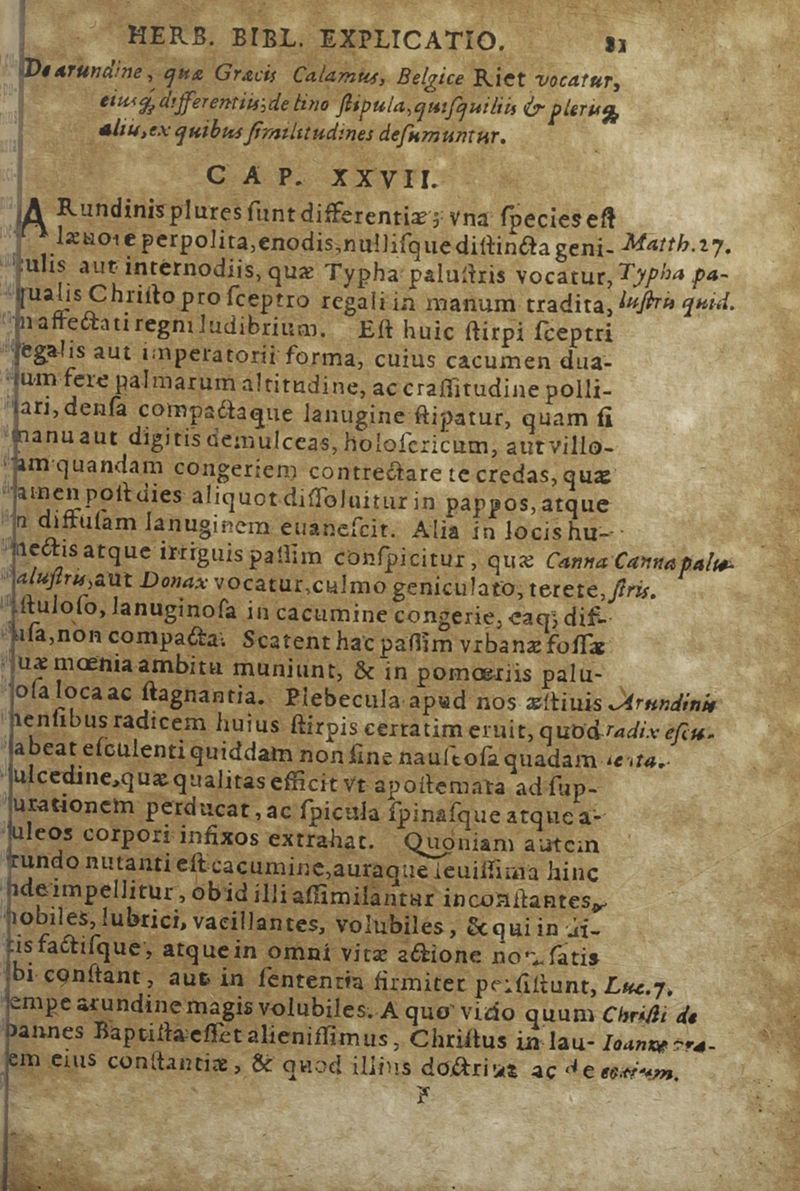 HERB. BIBL. EXPLICATIO. 81
De arundine, quæ Græcis Calamus, Belgice Riet vocatur,
eiusq́, differentiis; de lino stipula, quisquiliis & plerisq́,
aliis, ex quibus similitudines desumuntur.
CAP. XXVII.
ARundinis plures sunt differentiæ; vna species est
læuore perpolita, enodis, nullisque distincta geni- Matth.27.
culis aut internodiis, quæ Typha palustris vocatur, Typha pa-
qualis Christo pro sceptro regali in manum tradita, lustris quid.
in affectati regni ludibrium. Est huic stirpi sceptri
regalis aut imperatorii forma, cuius cacumen dua-
rum fere palmarum altitudine, ac crassitudine polli-
cari, densa compactaque lanugine stipatur, quam si
manu aut digitis demulceas, holosericum, aut villo-
sam quandam congeriem contrectare te credas, quæ
tamen post dies aliquot dissoluitur in pappos, atque
in diffusam lanuginem euanescit. Alia in locis hu-
mectis atque irriguis passim conspicitur, quæ Canna Canna palu-
palustris, aut Donax vocatur, culmo geniculato, terete, stris.
fistuloso, lanuginosa in cacumine congerie, eaq; dif-
fusa, non compacta. Scatent hac passim vrbanæ fossæ
quæ mœnia ambitu muniunt, & in pomœriis palu-
dosa loca ac stagnantia. Plebecula apud nos æstiuis Arundinis
mensibus radicem huius stirpis certatim eruit, quòd radix escu-
habeat esculenti quiddam non sine nauseosa quadam lenta.
dulcedine, quæ qualitas efficit vt apostemata ad sup-
purationem perducat, ac spicula spinasque atque a-
culeos corpori infixos extrahat. Quoniam autem
arundo nutanti est cacumine, auraque leuissima hinc
inde impellitur, ob id illi assimilantur inconstantes,
mobiles, lubrici, vacillantes, volubiles, & qui in di-
ctis factisque, atque in omni vitæ actione non satis
sibi constant, aut in sententia firmiter persistunt, Luc.7.
nempe arundine magis volubiles. A quo vitio quum Christi de
Ioannes Baptista esset alienissimus, Christus in lau-
dem eius constantiæ, & quod illius doctrinæ ac de
F